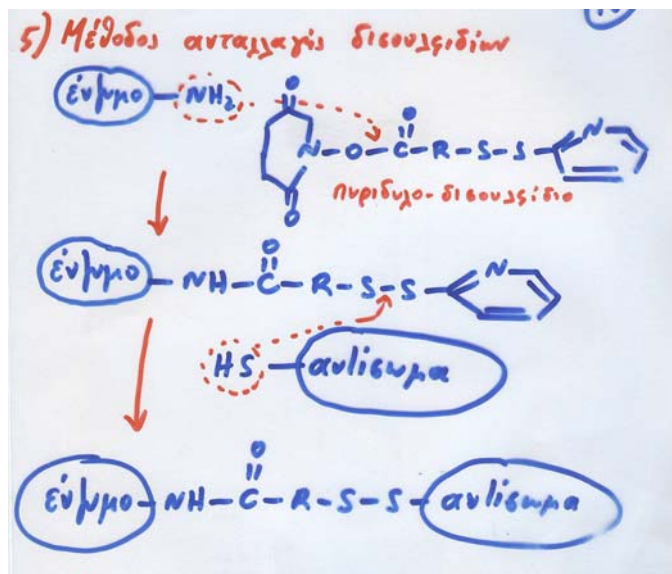 5) Μέθοδος ανταλλαγής δισουλφιδίων
ένζυμο – NH₂
O
N – O – C – R – S – S –
N
O
O
πυριδυλο-δισουλφίδιο
ένζυμο – NH – C – R – S – S –
O
N
HS – αντίσωμα
O
ένζυμο – NH – C – R – S – S – αντίσωμα